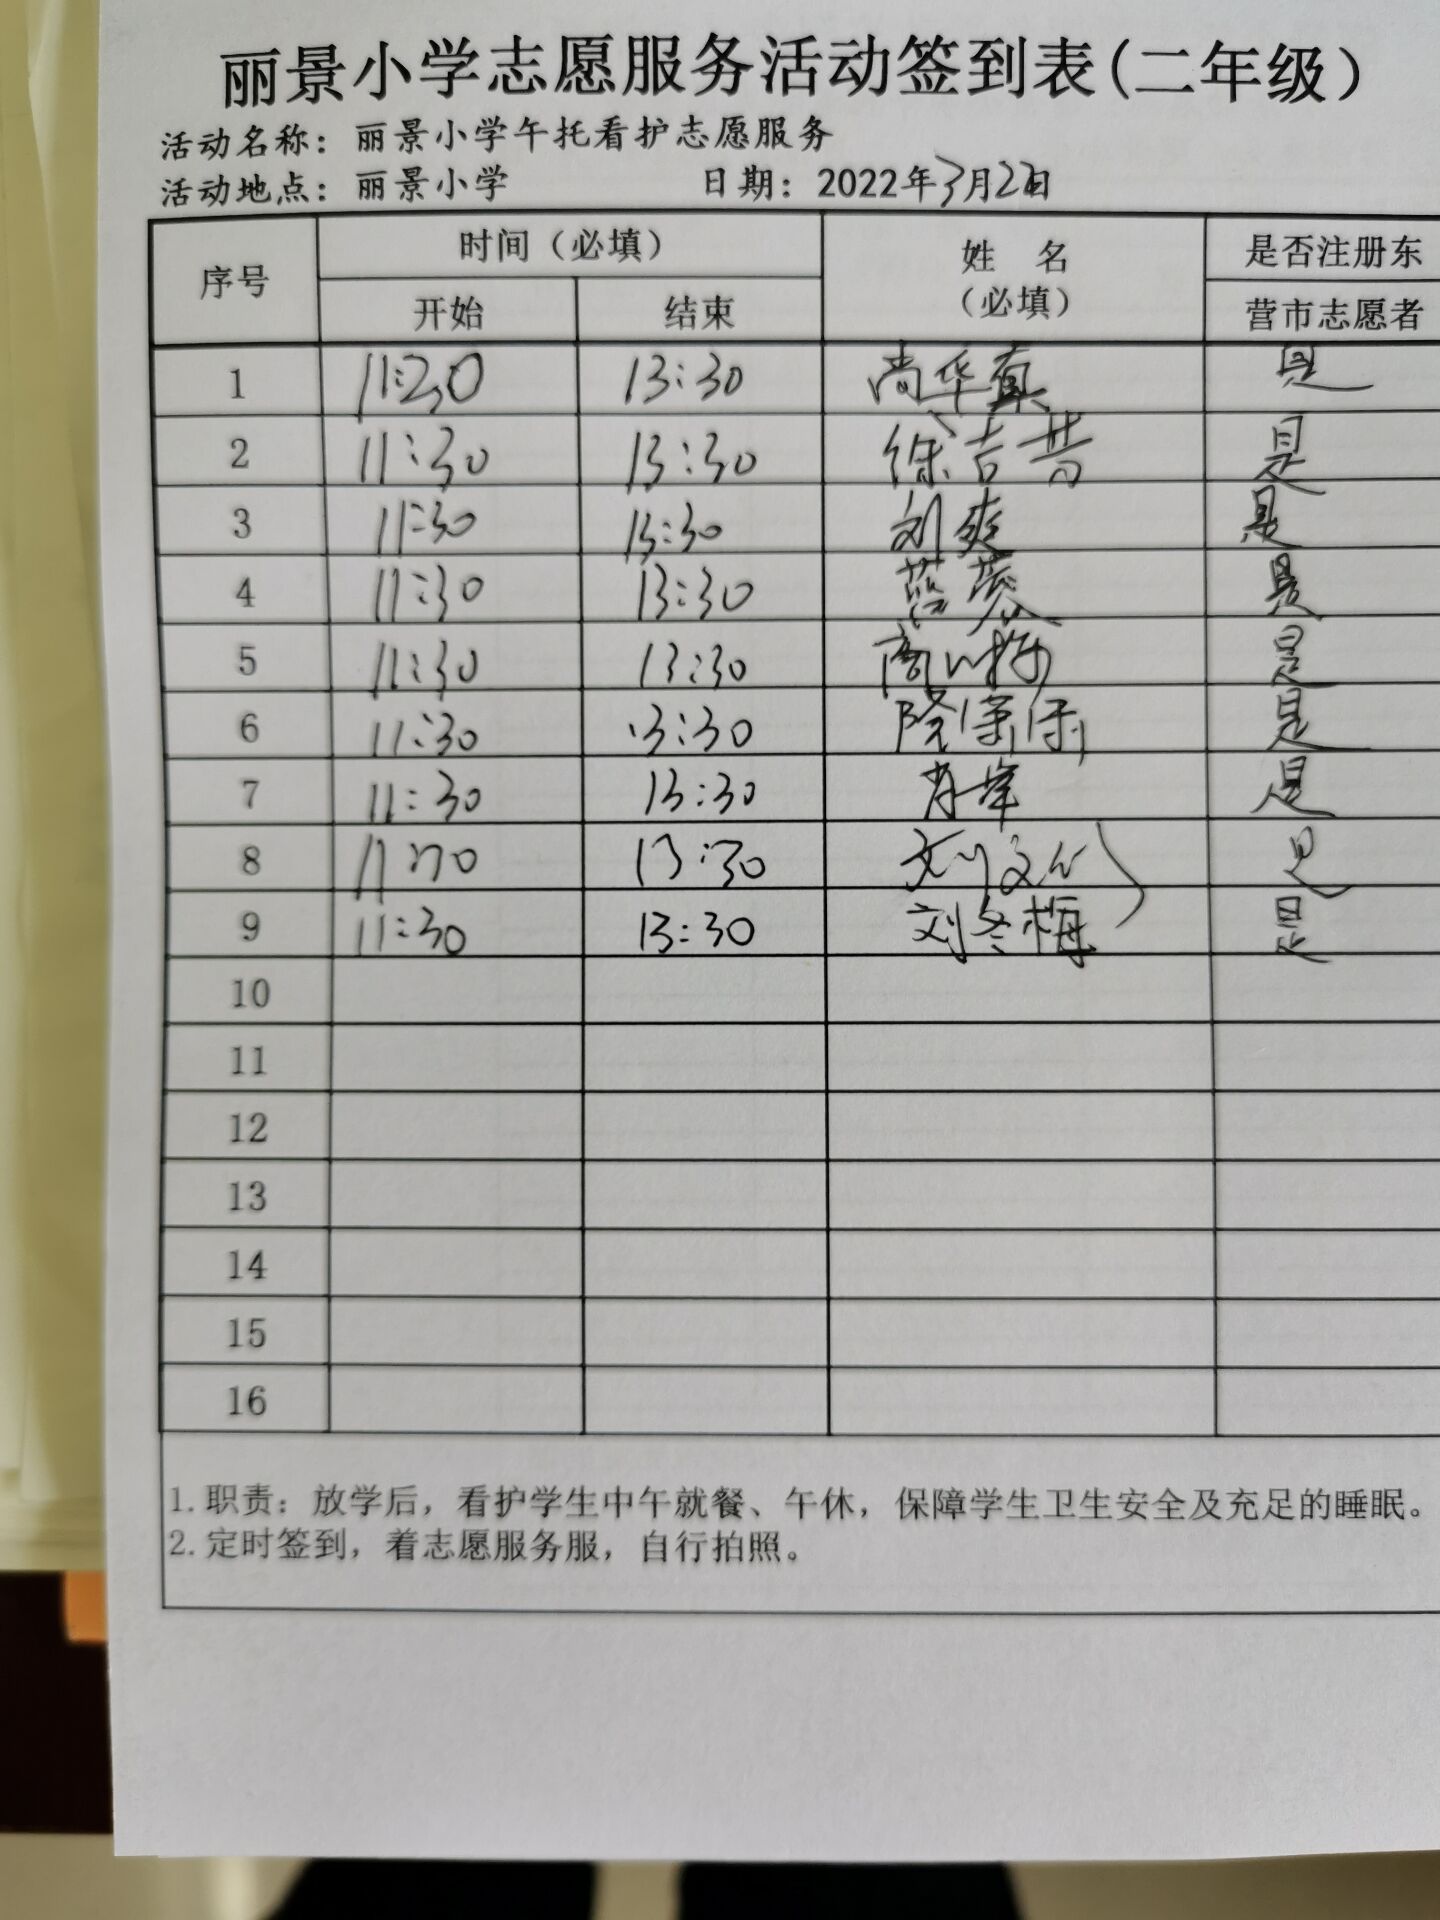 丽景小学志愿服务活动签到表(二年级)
活动名称：丽景小学午托看护志愿服务
活动地点：丽景小学 日期：2022年3月2日
序号 时间（必填） 姓 名（必填） 是否注册东营市志愿者
开始 结束
1 11:30 13:30 尚华真 是
2 11:30 13:30 徐吉 是
3 11:30 13:30 刘爽 是
4 11:30 13:30 是
5 11:30 13:30 是
6 11:30 13:30 隆 是
7 11:30 13:30 肖峰 是
8 11:30 13:30 刘文 是
9 11:30 13:30 刘冬梅 是
10
11
12
13
14
15
16
1.职责：放学后，看护学生中午就餐、午休，保障学生卫生安全及充足的睡眠。
2.定时签到，着志愿服务服，自行拍照。